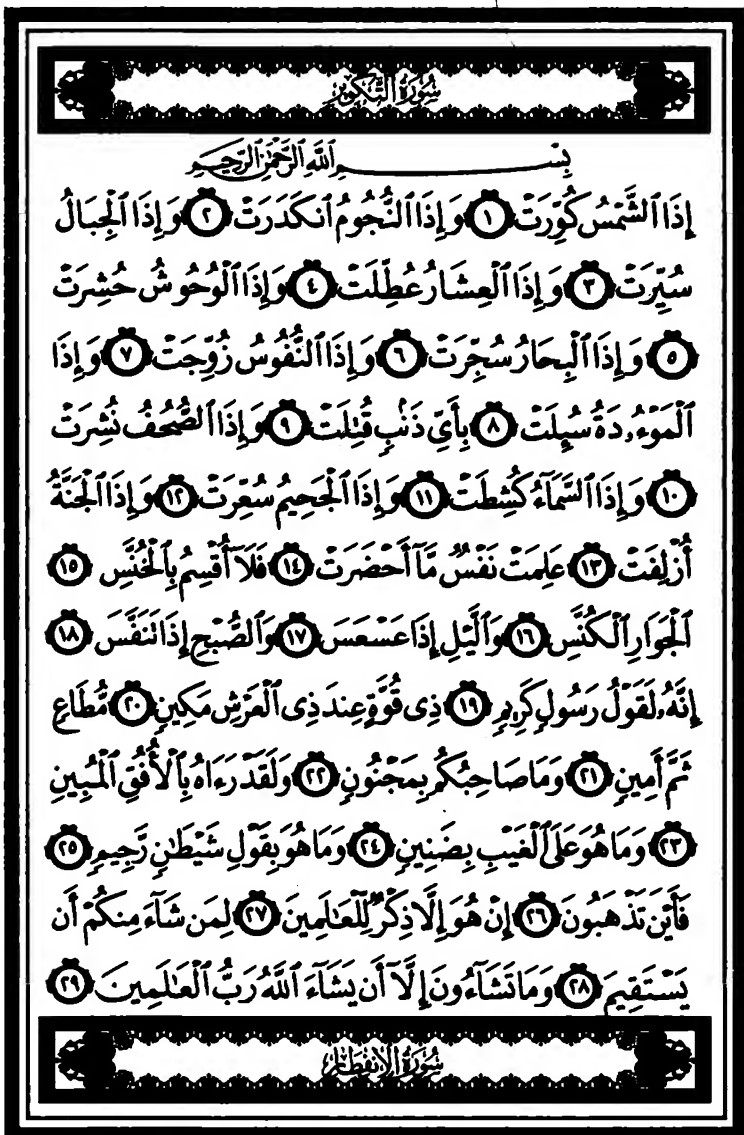 سُورَةُ التَّكْوِيرِ
بِسْمِ ٱللَّهِ ٱلرَّحْمَٰنِ ٱلرَّحِيمِ
إِذَا ٱلشَّمْسُ كُوِّرَتْ ١ وَإِذَا ٱلنُّجُومُ ٱنكَدَرَتْ ٢ وَإِذَا ٱلْجِبَالُ
سُيِّرَتْ ٣ وَإِذَا ٱلْعِشَارُ عُطِّلَتْ ٤ وَإِذَا ٱلْوُحُوشُ حُشِرَتْ
٥ وَإِذَا ٱلْبِحَارُ سُجِّرَتْ ٦ وَإِذَا ٱلنُّفُوسُ زُوِّجَتْ ٧ وَإِذَا
ٱلْمَوْءُۥدَةُ سُئِلَتْ ٨ بِأَيِّ ذَنۢبٍ قُتِلَتْ ٩ وَإِذَا ٱلصُّحُفُ نُشِرَتْ
١٠ وَإِذَا ٱلسَّمَآءُ كُشِطَتْ ١١ وَإِذَا ٱلْجَحِيمُ سُعِّرَتْ ١٢ وَإِذَا ٱلْجَنَّةُ
أُزْلِفَتْ ١٣ عَلِمَتْ نَفْسٌ مَّآ أَحْضَرَتْ ١٤ فَلَآ أُقْسِمُ بِٱلْخُنَّسِ ١٥
ٱلْجَوَارِ ٱلْكُنَّسِ ١٦ وَٱلَّيْلِ إِذَا عَسْعَسَ ١٧ وَٱلصُّبْحِ إِذَا تَنَفَّسَ ١٨
إِنَّهُۥ لَقَوْلُ رَسُولٍ كَرِيمٍ ١٩ ذِى قُوَّةٍ عِندَ ذِى ٱلْعَرْشِ مَكِينٍ ٢٠ مُّطَاعٍ
ثَمَّ أَمِينٍ ٢١ وَمَا صَاحِبُكُم بِمَجْنُونٍ ٢٢ وَلَقَدْ رَءَاهُ بِٱلْأُفُقِ ٱلْمُبِينِ
٢٣ وَمَا هُوَ عَلَى ٱلْغَيْبِ بِضَنِينٍ ٢٤ وَمَا هُوَ بِقَوْلِ شَيْطَٰنٍ رَّجِيمٍ ٢٥
فَأَيْنَ تَذْهَبُونَ ٢٦ إِنْ هُوَ إِلَّا ذِكْرٌ لِّلْعَٰلَمِينَ ٢٧ لِمَن شَآءَ مِنكُمْ أَن
يَسْتَقِيمَ ٢٨ وَمَا تَشَآءُونَ إِلَّآ أَن يَشَآءَ ٱللَّهُ رَبُّ ٱلْعَٰلَمِينَ ٢٩
سُورَةُ الِانفِطَارِ